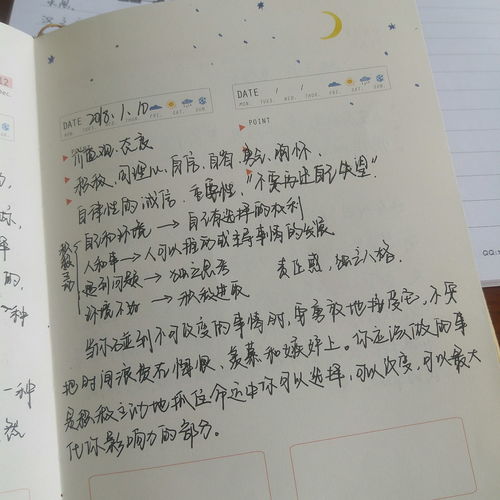 DATE 2018.1.10
MON. TUES. WED. THUR. FRI. SAT. SUN.
DATE / /
MON. TUES. WED. THUR. FRI. SAT. SUN.
POINT
价值观、态度
积极、同理心、自信、自省、勇气、胸怀.
自律性的诚信、重要性,"不要再让自己失望"
自己和环境 → 自己有选择的权利
积极主动
人和事 → 人可以推动或主导事情的发展
遇到问题 → 独立思考
责任感, 独立人格.
环境不如 → 积极进取
当你碰到不可改变的事情时, 要勇敢地接受它, 不要
把时间浪费在悔恨、羡慕和嫉妒上。你应该做的事
是积极主动地抓住命运中你可以选择, 可以改变, 可以最大
化你影响力的部分.
QQ: